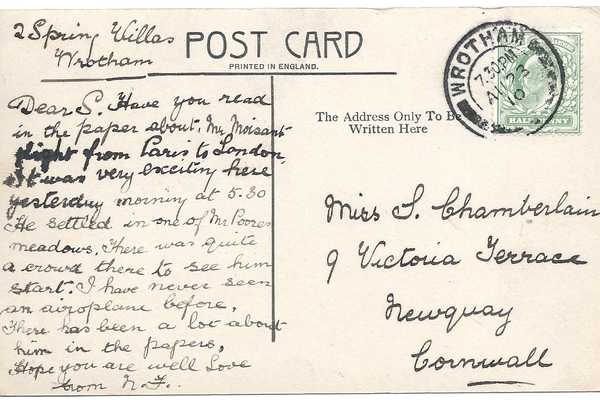 2 Spring Villas
Wrotham
POST CARD
PRINTED IN ENGLAND.
Dear S. Have you read
in the paper about Mr Moisant
flight from Paris to London,
It was very exciting here
yesterday morning at 5.30
He settled in one of Mr Poores
meadows. There was quite
a crowd there to see him
start. I have never seen
an airoplane before,
There has been a lot about
him in the papers,
Hope you are well Love
from N.F.
The Address Only To Be
Written Here
WROTHAM
7.30PM
AU 22
10
HALFPENNY
Miss S. Chamberlain
9 Victoria Terrace
Newquay
Cornwall